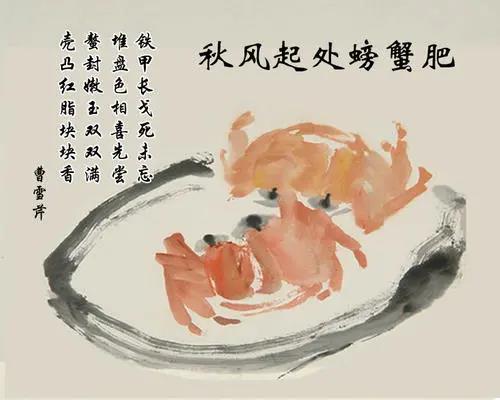 秋风起处螃蟹肥
铁甲长戈死未忘
堆盘色相喜先尝
螯封嫩玉双双满
壳凸红脂块块香
曹雪芹